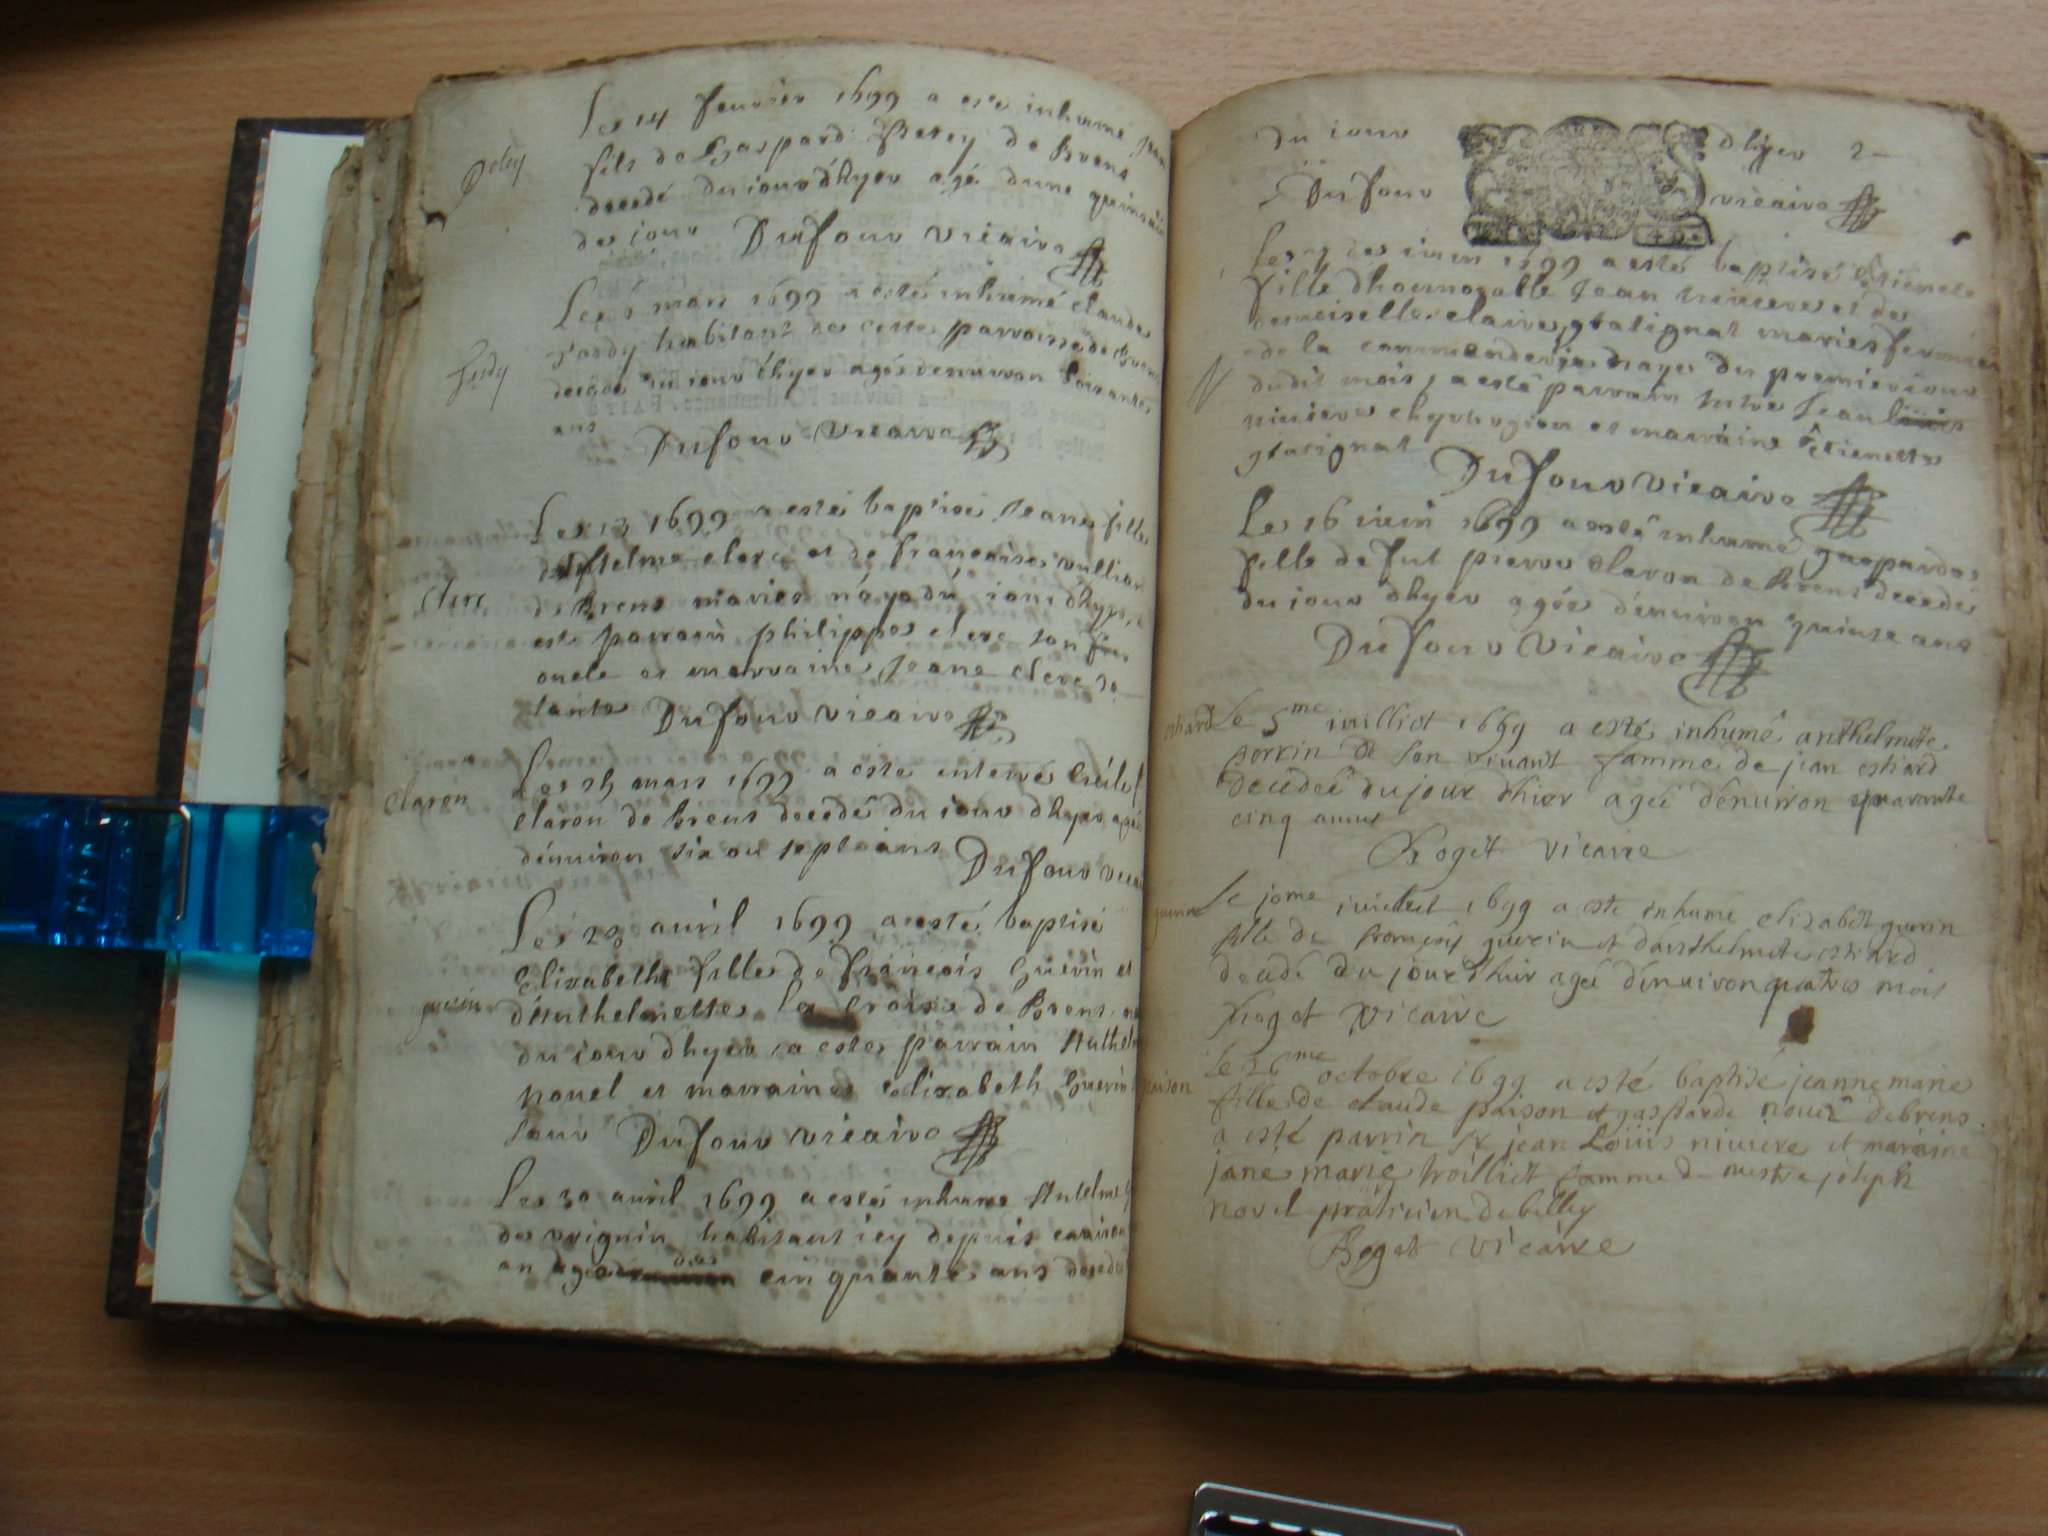 Le 14 feurier 1699 a este inhumé Jean
fils de Gaspard Betey de Brens
decedé du iour dhyer agé dune quinsaine
de iour Dufour vicaire
Le 6 mars 1699 a esté inhumé claude
habitant de cette parroisse de Brens
decedé du iour dhyer agé denuiron soisante
ans Dufour vicaire
Le 13 1699 a esté baptisé Jeane fille
danthelme clerc et de francoise
clerc
de Brens mariés née du iour dhyer, a
esté parrain philippe clerc son
oncle et marraine Jeane clerc sa
tante Dufour vicaire
Le 25 mars 1699 a este enterré
claron
claron de brens decedé du iour dhyer agé
dénuiron six ou sept ans Dufour
Le 23 auril 1699 a esté baptisé
Elisabeth fille de francois Guerin et
guerin
d'Anthelmette la croix de Brens
du iour dhyer, a esté parrain Anthelme
nouel et marraine elisabeth Guerin
Dufour vicaire
Le 30 auril 1699 a esté inhumé Antelme
de vrignin habitant icy depuis enuiron
an agé de cinquante ans decedé
du iour dhyer
Dufour vicaire
Le des iuin 1699 a esté baptisé Estienete
fille dhonnorable Jean niuiere et de
demoiselle claire gratignat mariés fermier
de la commenderie du premier iour
dudit mois, a esté parrain Jean
niuiere chyrurgien et marraine Estienette
gratignat Dufour vicaire
Le 16 iuin 1699 a esté inhumé gasparde
fille de fut pierre claron de Brens decedé
du iour dhyer agée dénuiron quinse ans
Dufour vicaire
Le 5me iuilliet 1699 a esté inhumé anthelmette
perrin de son viuant famme de jean
decedeé du jour dhier ageé dénuiron quarante
cinq annes
Roget vicaire
Le iuilliet 1699 a esté inhume elizabet guerin
guerin
fille de francois guerin et danthelmete
decedé du jour dhier ageé dénuiron quatre mois
Roget vicaire
Le 26me octobre 1699 a esté baptiseé jeanne marie
paison
fille de claude paison et gasparde nouel de brens
a esté parrin Sr jean Loüis niuiere et maraine
jane marie trolliet famme de mestre joseph
novel praticien de belley
Roget vicaire